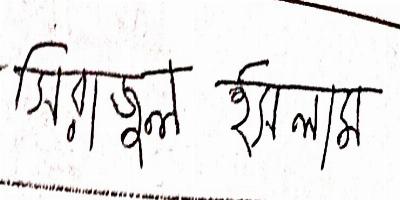 সিরাজুল ইসলাম